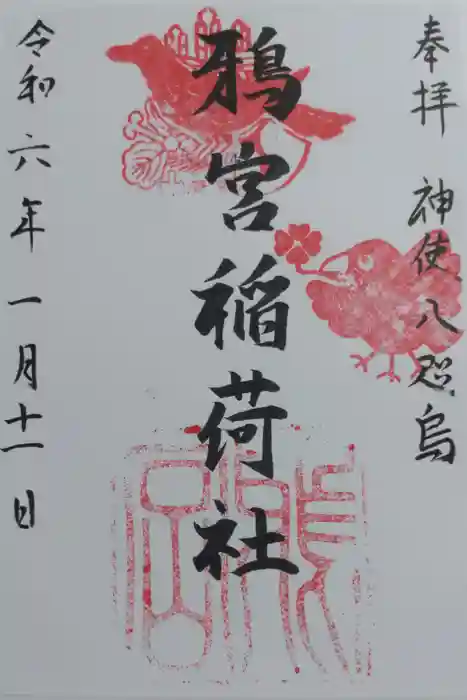 奉拝 神使八咫烏
鴉宮稲荷社
令和六年一月十一日